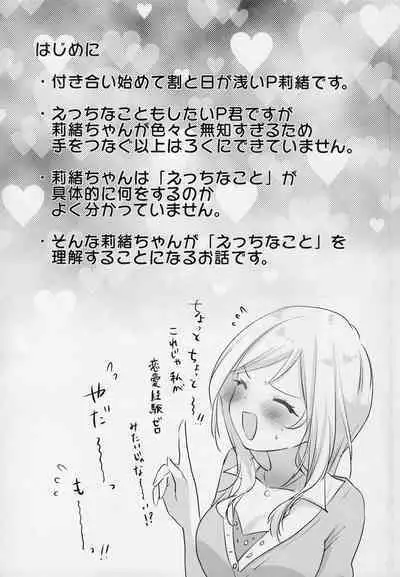 はじめに
・付き合い始めて割と日が浅いP莉緒です。
・えっちなこともしたいP君ですが
莉緒ちゃんが色々と無知すぎるため
手をつなぐ以上はろくにできていません。
・莉緒ちゃんは「えっちなこと」が
具体的に何をするのか
よく分かっていません。
・そんな莉緒ちゃんが「えっちなこと」を
理解することになるお話です。
ちょっとちょっと〜!!
これじゃ私が
恋愛経験ゼロ
みたいじゃな〜い!?
やだ〜
も〜〜!!